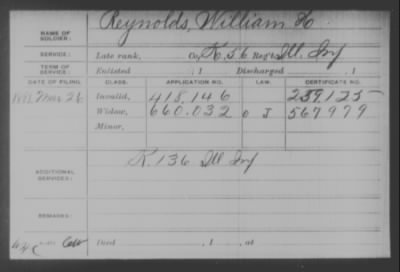 Reynolds, William H.
NAME OF SOLDIER:
SERVICE: Late rank, Co. K, 56 Reg't Ill. Inf
TERM OF SERVICE: Enlisted , 1 Discharged , 1
DATE OF FILING. CLASS. APPLICATION NO. LAW. CERTIFICATE NO.
Mar 26 Invalid, 418.146 259.125
Widow, 660.032 O J 567979
Minor,
K. 136 Ill Inf
ADDITIONAL SERVICES:
REMARKS:
Died , 1 , at